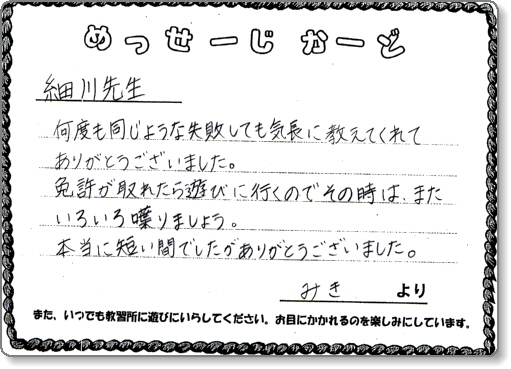 めっせーじかーど
細川先生
何度も同じような失敗しても気長に教えてくれて
ありがとうございました。
免許が取れたら遊びに行くのでその時は、また
いろいろ喋りましょう。
本当に短い間でしたがありがとうございました。
みき より
また、いつでも教習所に遊びにいらしてください。お目にかかれるのを楽しみにしています。